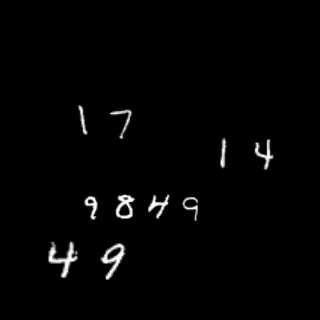 17
14
9849
49